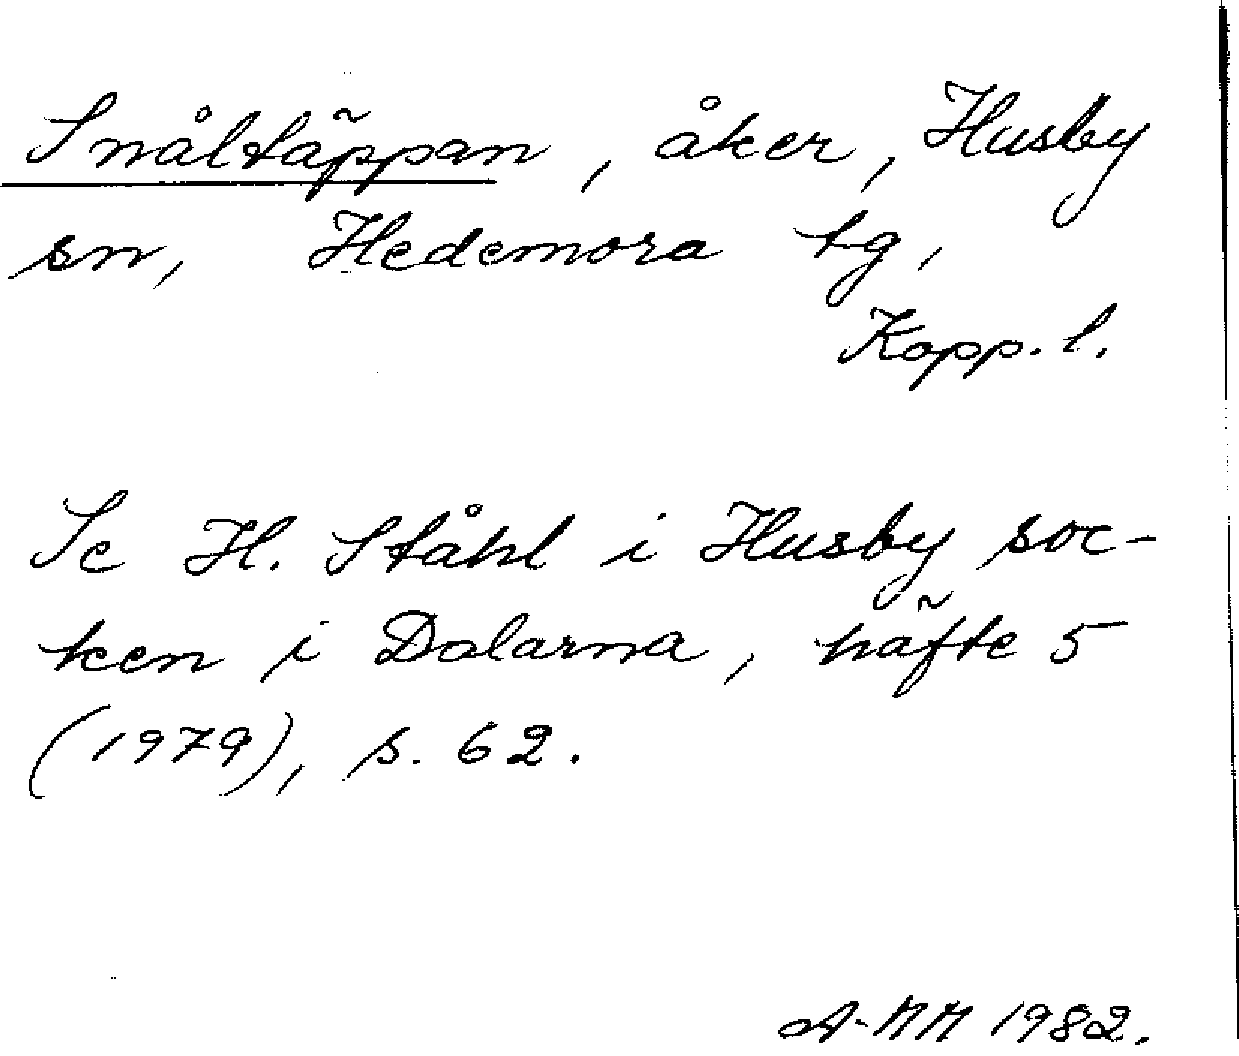 Snåltäppan, åker, Husby
sn, Hedemora tg,
Kopp. l.
Se H. Ståhl i Husby soc-
ken i Dalarna, häfte 5
(1979), s. 62.
A-MM 1982.